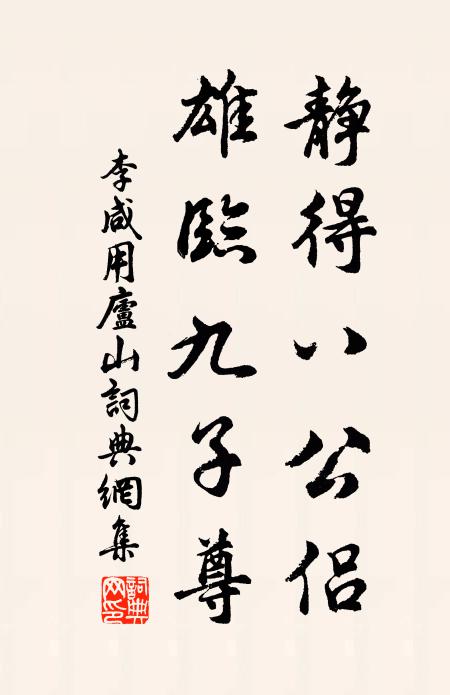 静得八公侣
雄臨九子尊
李咸用廬山詞典網集
詞典網印